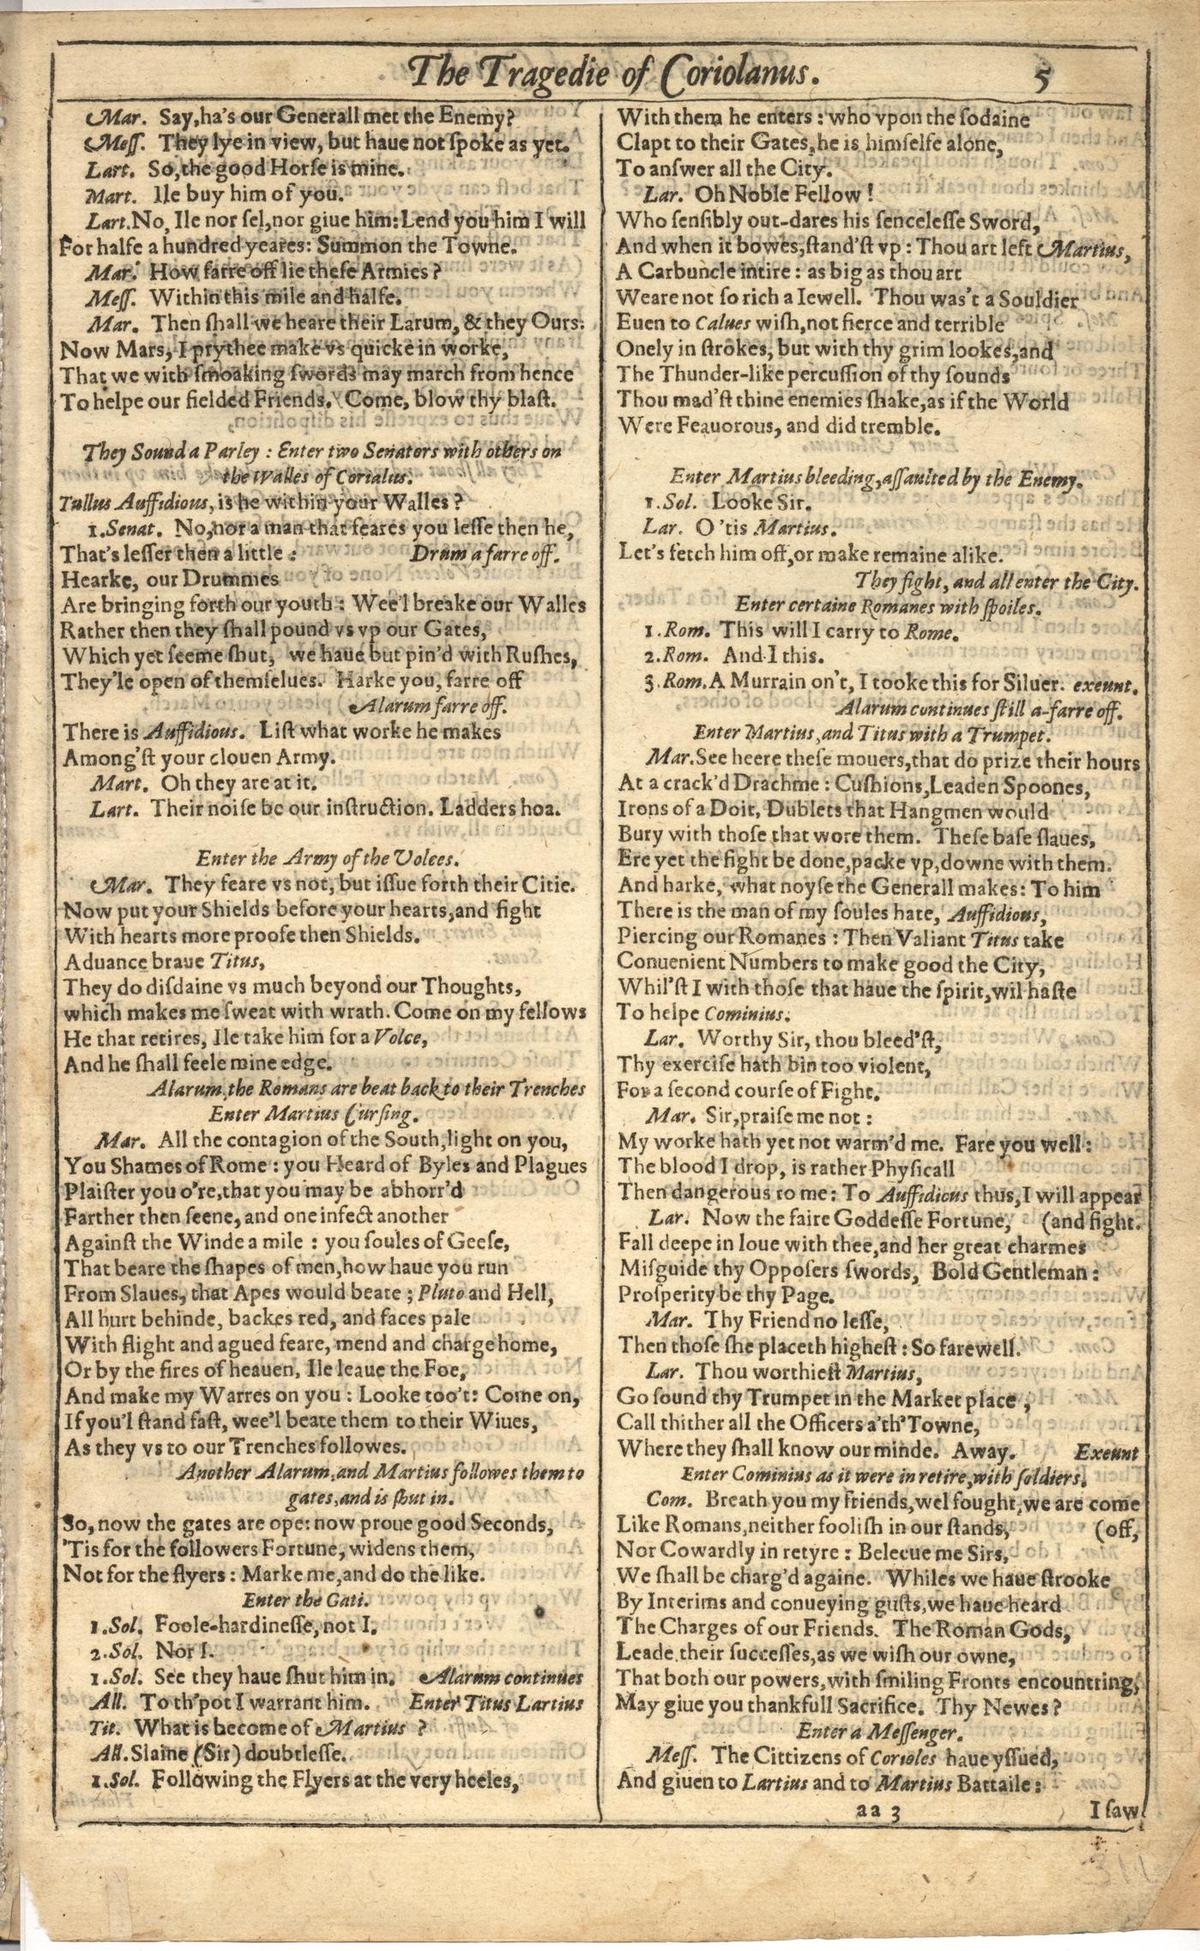 The Tragedie of Coriolanus. 5
Mar. Say,ha's our Generall met the Enemy?
Mess. They lye in view, but haue not spoke as yet.
Lart. So,the good Horse is mine.
Mart. Ile buy him of you.
Lart.No, Ile nor sel,nor giue him:Lend you him I will
For halfe a hundred yeares: Summon the Towne.
Mar. How farre off lie these Armies?
Mess. Within this mile and halfe.
Mar. Then shall we heare their Larum, & they Ours.
Now Mars, I prythee make vs quicke in worke,
That we with smoaking swords may march from hence
To helpe our fielded Friends. Come, blow thy blast.
They Sound a Parley : Enter two Senators with others on
the Walles of Corialus.
Tullus Auffidious, is he within your Walles?
1.Senat. No,nor a man that feares you lesse then he,
That's lesser then a little : Drum a farre off.
Hearke, our Drummes
Are bringing forth our youth : Wee'l breake our Walles
Rather then they shall pound vs vp our Gates,
Which yet seeme shut, we haue but pin'd with Rushes,
They'le open of themselues. Harke you, farre off
Alarum farre off.
There is Auffidious. List what worke he makes
Among'st your clouen Army.
Mart. Oh they are at it.
Lart. Their noise be our instruction. Ladders hoa.
Enter the Army of the Volces.
Mar. They feare vs not, but issue forth their Citie.
Now put your Shields before your hearts,and fight
With hearts more proofe then Shields.
Aduance braue Titus,
They do disdaine vs much beyond our Thoughts,
which makes me sweat with wrath. Come on my fellows
He that retires, Ile take him for a Volce,
And he shall feele mine edge.
Alarum,the Romans are beat back to their Trenches
Enter Martius Cursing.
Mar. All the contagion of the South,light on you,
You Shames of Rome : you Heard of Byles and Plagues
Plaister you o're,that you may be abhorr'd
Farther then seene, and one infect another
Against the Winde a mile : you soules of Geese,
That beare the shapes of men,how haue you run
From Slaues, that Apes would beate ; Pluto and Hell,
All hurt behinde, backes red, and faces pale
With flight and agued feare, mend and charge home,
Or by the fires of heauen, Ile leaue the Foe,
And make my Warres on you : Looke too't: Come on,
If you'l stand fast, wee'l beate them to their Wiues,
As they vs to our Trenches followes.
Another Alarum,and Martius followes them to
gates,and is shut in.
So, now the gates are ope: now proue good Seconds,
'Tis for the followers Fortune, widens them,
Not for the flyers : Marke me,and do the like.
Enter the Gati.
1.Sol. Foole-hardinesse, not I.
2.Sol. Nor I.
1.Sol. See they haue shut him in. Alarum continues
All. To th'pot I warrant him. Enter Titus Lartius
Tit. What is become of Martius ?
All.Slaine (Sir) doubtlesse.
1.Sol. Following the Flyers at the very heeles,
With them he enters : who vpon the sodaine
Clapt to their Gates,he is himselfe alone,
To answer all the City.
Lar. Oh Noble Fellow!
Who sensibly out-dares his sencelesse Sword,
And when it bowes,stand'st vp : Thou art left Martius,
A Carbuncle intire : as big as thou art
Weare not so rich a Iewell. Thou was't a Souldier
Euen to Calues wish,not fierce and terrible
Onely in strokes, but with thy grim lookes,and
The Thunder-like percussion of thy sounds
Thou mad'st thine enemies shake,as if the World
Were Feauorous, and did tremble.
Enter Martius bleeding,assaulted by the Enemy.
1.Sol. Looke Sir.
Lar. O 'tis Martius.
Let's fetch him off,or make remaine alike.
They fight, and all enter the City.
Enter certaine Romanes with spoiles.
1.Rom. This will I carry to Rome.
2.Rom. And I this.
3.Rom.A Murrain on't, I tooke this for Siluer. exeunt.
Alarum continues still a-farre off.
Enter Martius,and Titus with a Trumpet.
Mar.See heere these mouers,that do prize their hours
At a crack'd Drachme : Cushions,Leaden Spoones,
Irons of a Doit, Dublets that Hangmen would
Bury with those that wore them. These base slaues,
Ere yet the fight be done,packe vp,downe with them.
And harke, what noyse the Generall makes: To him
There is the man of my soules hate, Auffidious,
Piercing our Romanes : Then Valiant Titus take
Conuenient Numbers to make good the City,
Whil'st I with those that haue the spirit,wil haste
To helpe Cominius.
Lar. Worthy Sir, thou bleed'st,
Thy exercise hath bin too violent,
For a second course of Fight.
Mar. Sir,praise me not :
My worke hath yet not warm'd me. Fare you well :
The blood I drop, is rather Physicall
Then dangerous to me: To Auffidious thus,I will appear
Lar. Now the faire Goddesse Fortune, (and fight.
Fall deepe in loue with thee,and her great charmes
Misguide thy Opposers swords, Bold Gentleman :
Prosperity be thy Page.
Mar. Thy Friend no lesse,
Then those she placeth highest : So farewell.
Lar. Thou worthiest Martius,
Go sound thy Trumpet in the Market place,
Call thither all the Officers a'th'Towne,
Where they shall know our minde. Away. Exeunt
Enter Cominius as it were in retire,with soldiers.
Com. Breath you my friends,wel fought,we are come
Like Romans,neither foolish in our stands, (off,
Nor Cowardly in retyre : Beleeue me Sirs,
We shall be charg'd againe. Whiles we haue strooke
By Interims and conueying gusts,we haue heard
The Charges of our Friends. The Roman Gods,
Leade their successes,as we wish our owne,
That both our powers,with smiling Fronts encountring,
May giue you thankfull Sacrifice. Thy Newes?
Enter a Messenger.
Mess. The Cittizens of Corioles haue yssued,
And giuen to Lartius and to Martius Battaile :
aa 3 I saw